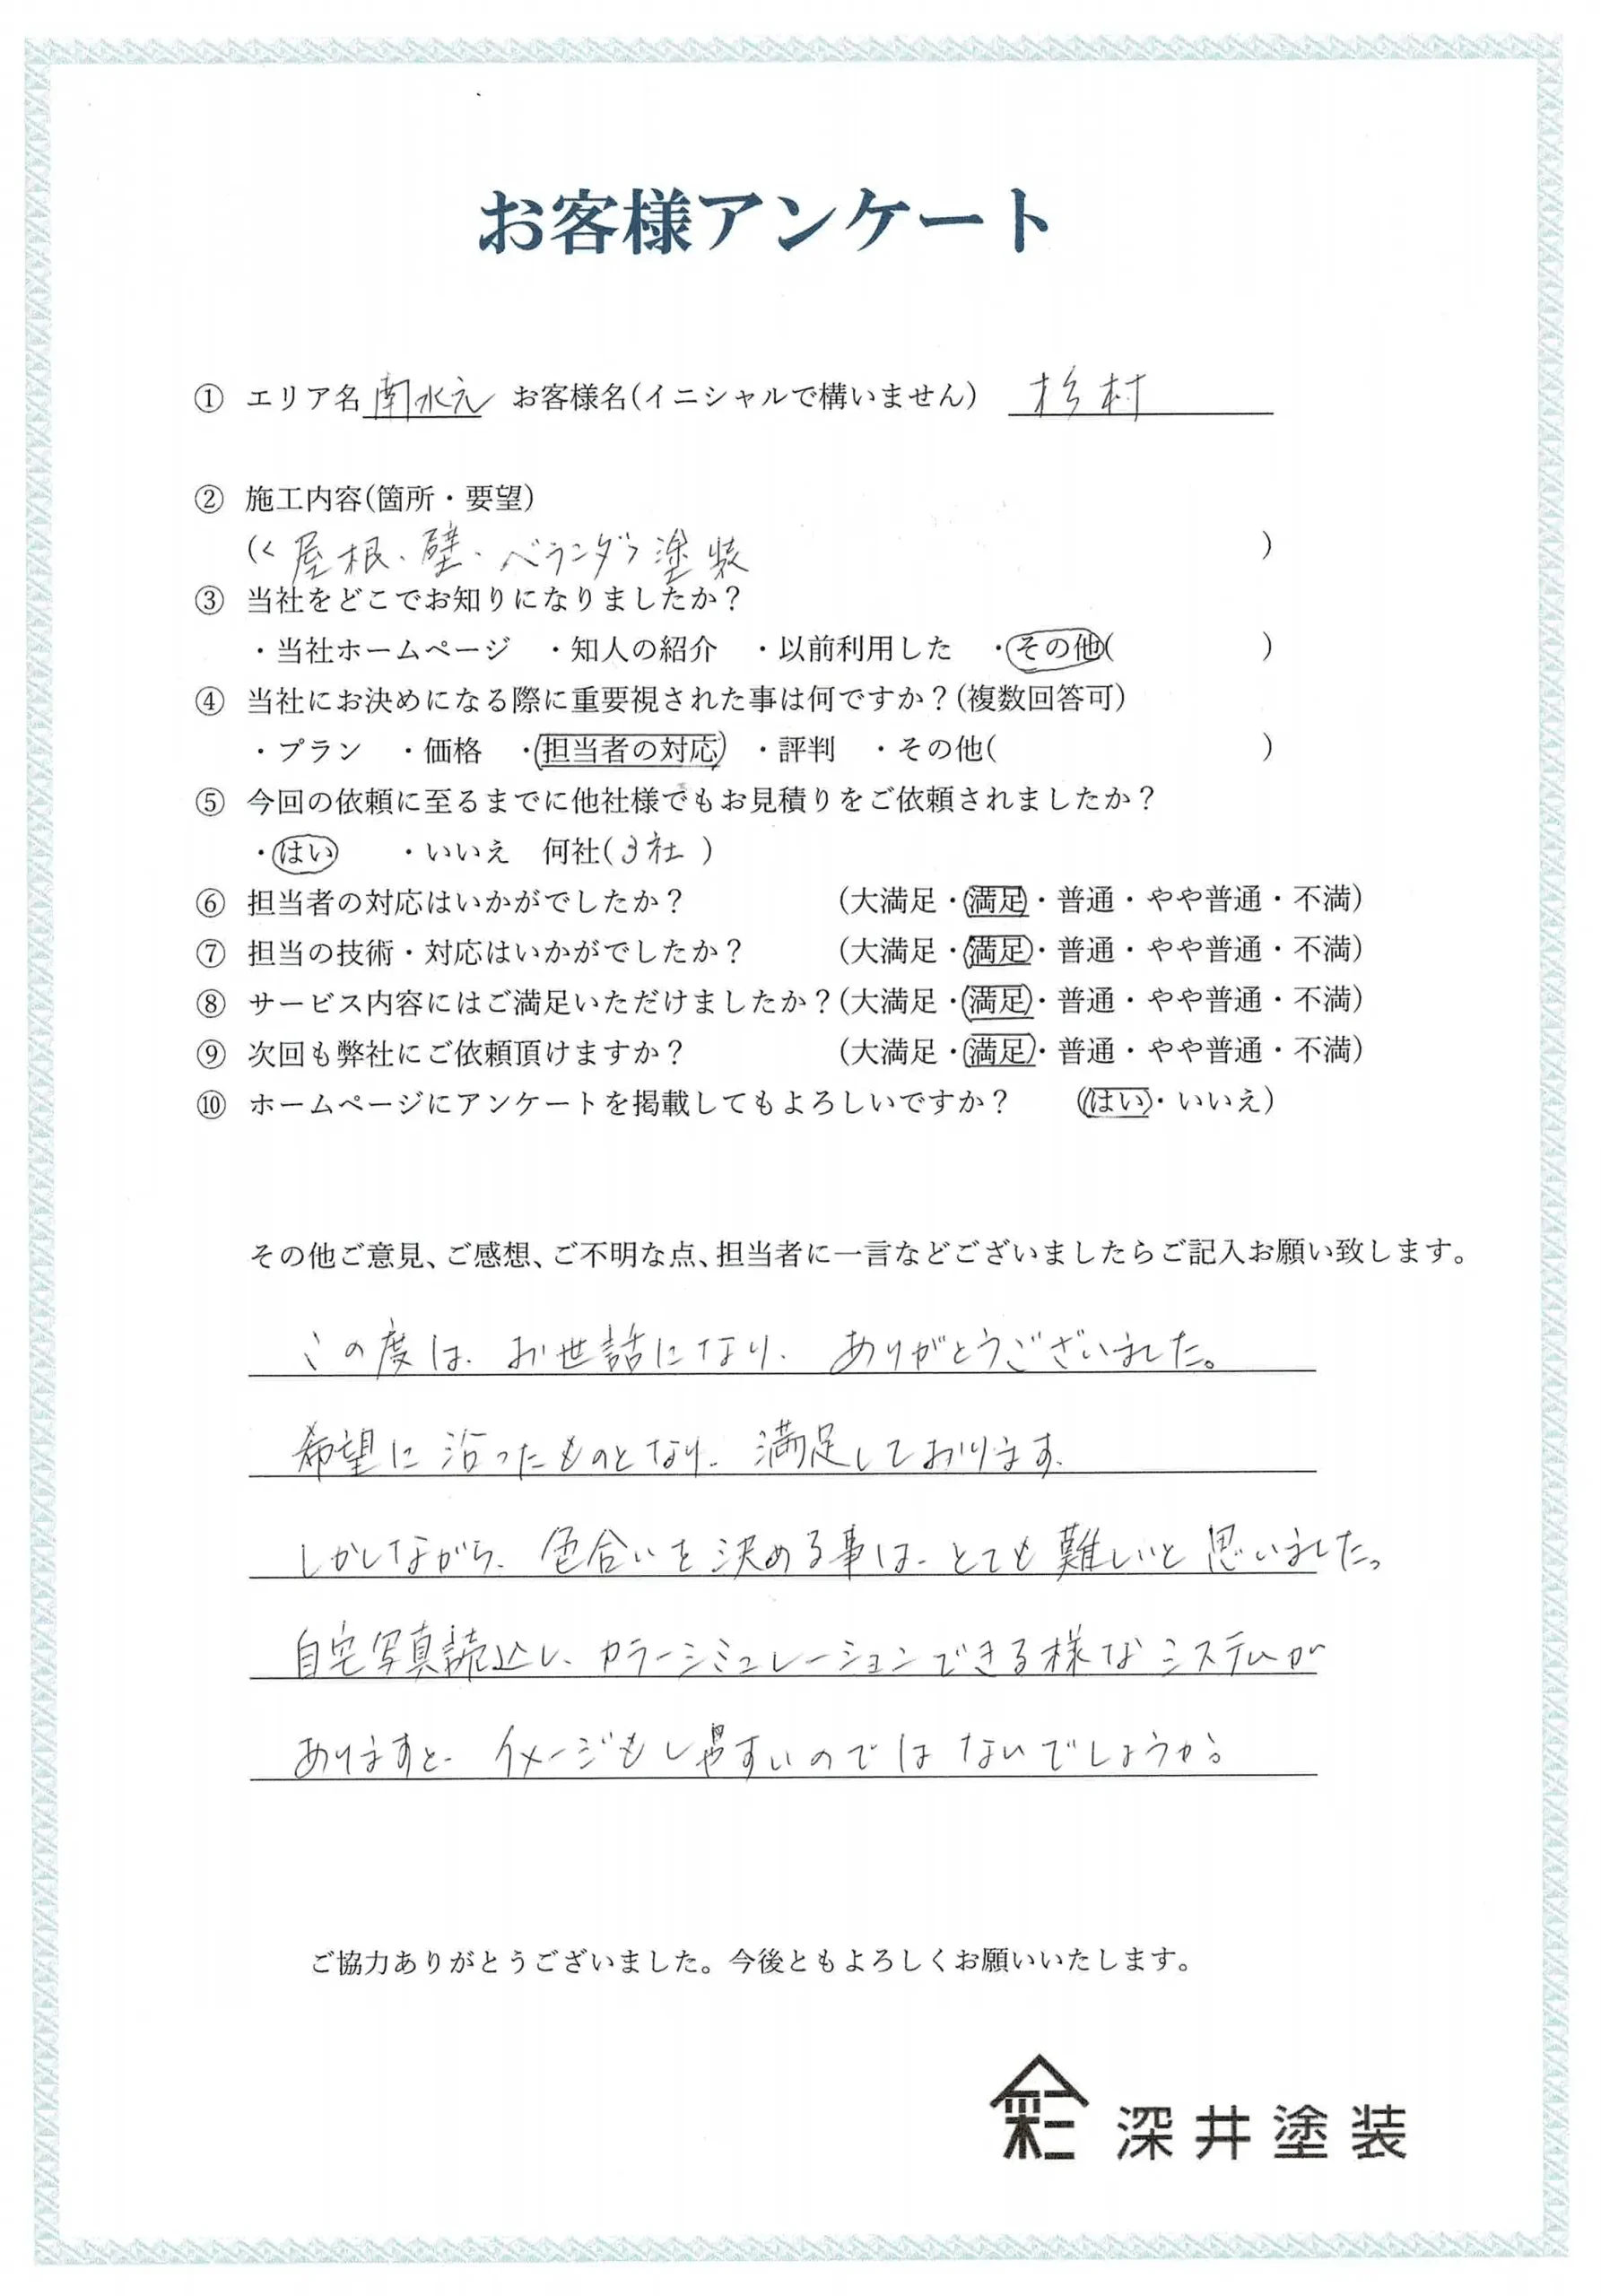 お客様アンケート
① エリア名 南水元 お客様名(イニシャルで構いません) 杉村
② 施工内容(箇所・要望)
(< 屋根、壁、ベランダ> 塗装 )
③ 当社をどこでお知りになりましたか？
・当社ホームページ ・知人の紹介 ・以前利用した ・その他( )
④ 当社にお決めになる際に重要視された事は何ですか？(複数回答可)
・プラン ・価格 ・担当者の対応 ・評判 ・その他( )
⑤ 今回の依頼に至るまでに他社様でもお見積りをご依頼されましたか？
・はい ・いいえ 何社(3社 )
⑥ 担当者の対応はいかがでしたか？ (大満足・満足・普通・やや普通・不満)
⑦ 担当の技術・対応はいかがでしたか？ (大満足・満足・普通・やや普通・不満)
⑧ サービス内容にはご満足いただけましたか？(大満足・満足・普通・やや普通・不満)
⑨ 次回も弊社にご依頼頂けますか？ (大満足・満足・普通・やや普通・不満)
⑩ ホームページにアンケートを掲載してもよろしいですか？ (はい・いいえ)
その他ご意見、ご感想、ご不明な点、担当者に一言などございましたらご記入お願い致します。
この度は、お世話になり、ありがとうございました。
希望に沿ったものとなり、満足しております。
しかしながら、色合いを決める事は、とても難しいと思いました。
自宅写真読込し、カラーシミュレーションできる様なシステムが
ありますと、イメージもし易すいのではないでしょうか。
ご協力ありがとうございました。今後ともよろしくお願いいたします。
彩 深井塗装